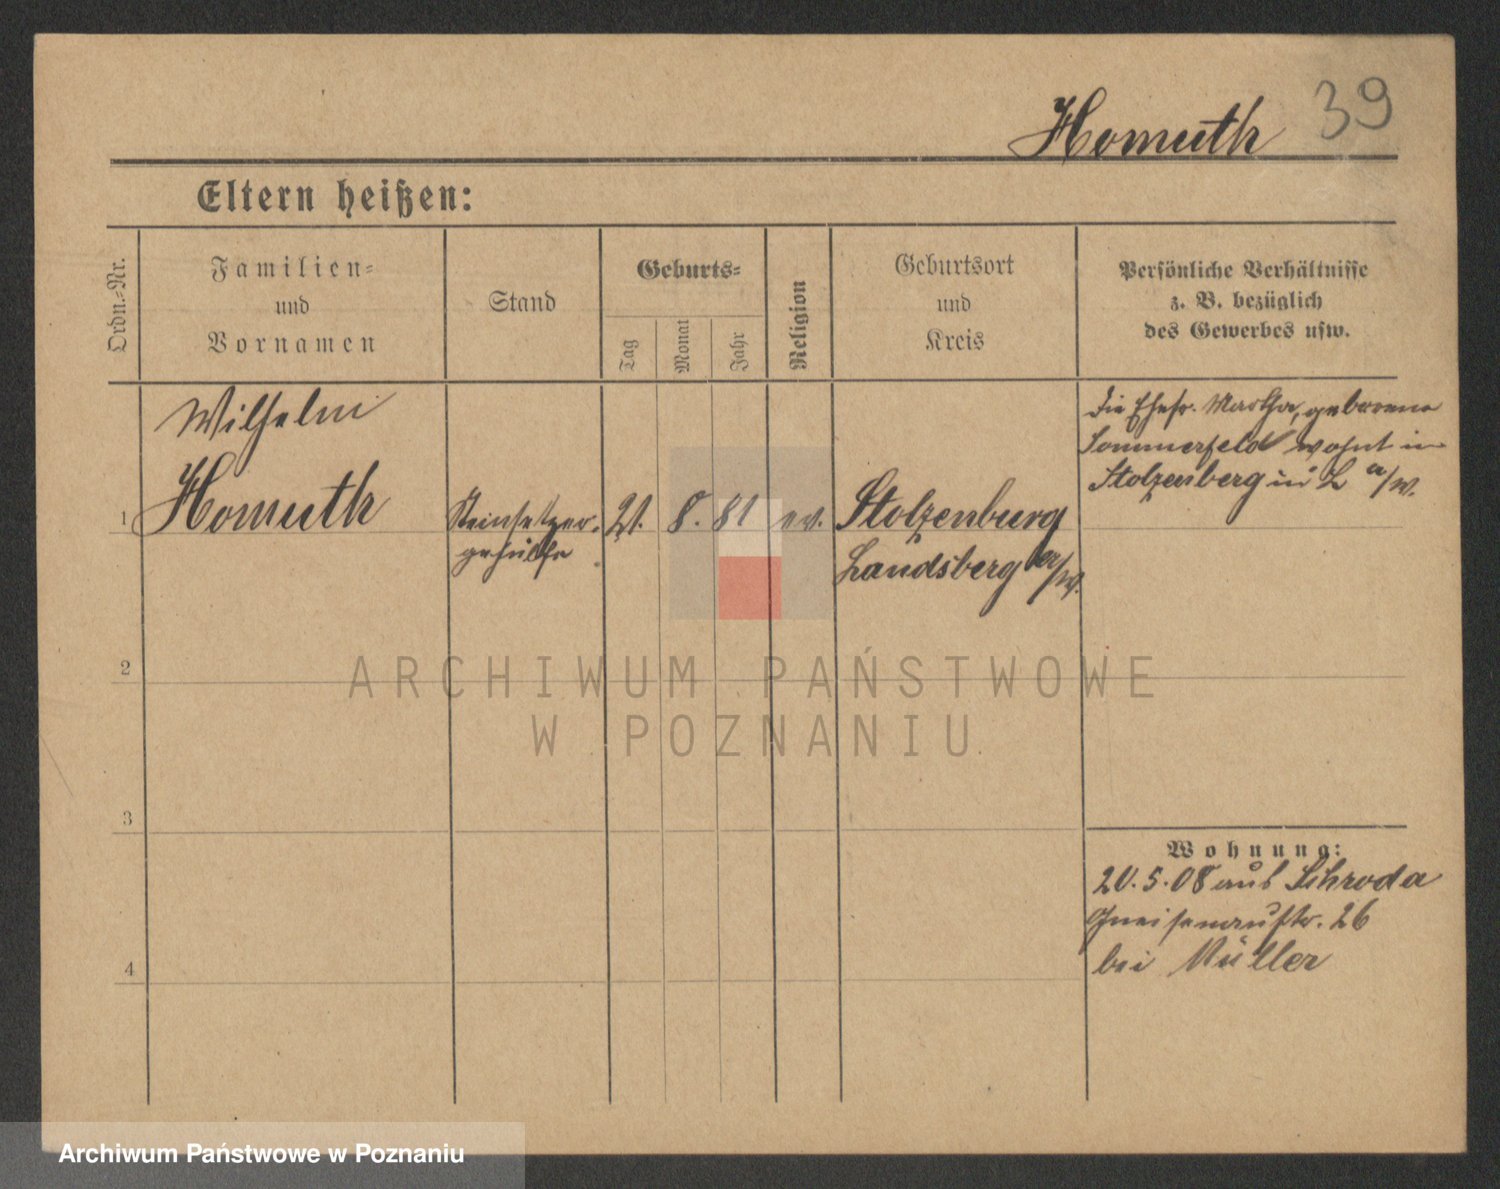 39
Homuth
Eltern heißen:
Ordn.-Nr.
Familien-
und
Vornamen
Stand
Geburts-
Tag
Monat
Jahr
Religion
Geburtsort
und
Kreis
Persönliche Verhältnisse
z. B. bezüglich
des Gewerbes usw.
Wilhelm
1 Homuth
Steinsetzer-
gehülfe
21. 8. 81 ev.
Stolzenburg
Landsberg a/W.
Die Ehefr. Martha, geborene
Sommerfeld wohnt in
Stolzenberg in L a/W.
2
3
4
Wohnung:
20.5.08 aus Schroda
Gneisenaustr. 26
bei Müller
ARCHIWUM PAŃSTWOWE
W POZNANIU
Archiwum Państwowe w Poznaniu